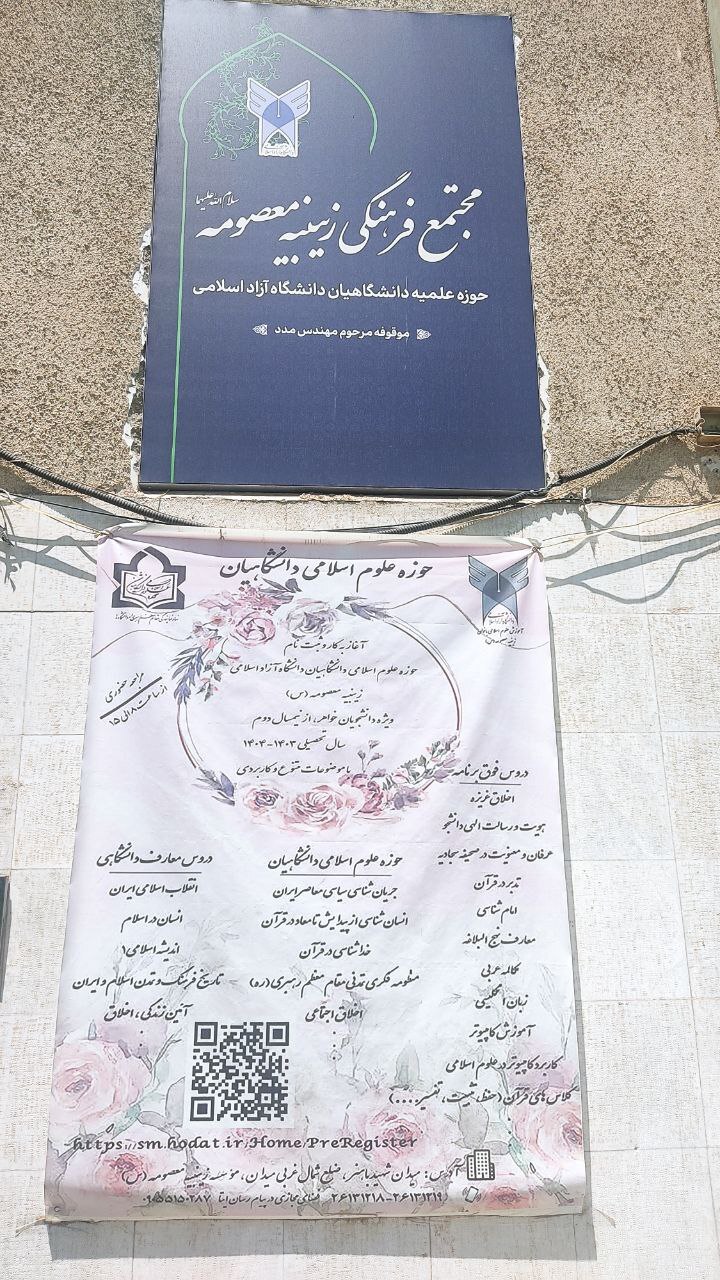 مجتمع فرهنگی زینبیه معصومه سلام الله علیهما
حوزه علمیه دانشگاهیان دانشگاه آزاد اسلامی
موقوفه مرحوم مهندس مدد
حوزه علوم اسلامی دانشگاهیان
آغاز به کار و ثبت نام
حوزه علوم اسلامی دانشگاهیان دانشگاه آزاد اسلامی
زینبیه معصومه (س)
ویژه دانشجویان خواهر، از نیمسال دوم
سال تحصیلی ۱۴۰۳-۱۴۰۴
با موضوعات متنوع و کاربردی
مراجعه حضوری
از ساعت ۸ الی ۱۵
دروس فوق برنامه
اخلاق غریزه
هویت و رسالت الهی دانشجو
عرفان و معنویت در صحیفه سجادیه
تدبر در قرآن
امام شناسی
معارف نهج البلاغه
مکالمه عربی
زبان انگلیسی
آموزش کامپیوتر
کاربرد کامپیوتر در علوم اسلامی
کلاس های قرآن (حفظ، تثبیت، تفسیر....)
حوزه علوم اسلامی دانشگاهیان
جریان شناسی سیاسی معاصر ایران
انسان شناسی از پیدایش تا معاد در قرآن
خداشناسی در قرآن
منظومه فکری تمدنی مقام معظم رهبری (ره)
اخلاق اجتماعی
دروس معارف دانشگاهی
انقلاب اسلامی ایران
انسان در اسلام
اندیشه اسلامی ۱
تاریخ فرهنگ و تمدن اسلام و ایران
آئین زندگی، اخلاق
https://sm.hodat.ir/Home/PreRegister
آدرس: میدان شهید باهنر، ضلع شمال غربی میدان، مؤسسه زینبیه معصومه (س)
۲۶۱۳۱۲۱۸-۲۶۱۳۱۲۱۹ فضای مجازی در پیام رسان ایتا ۰۹۵۵۱۵۰۲۸۷